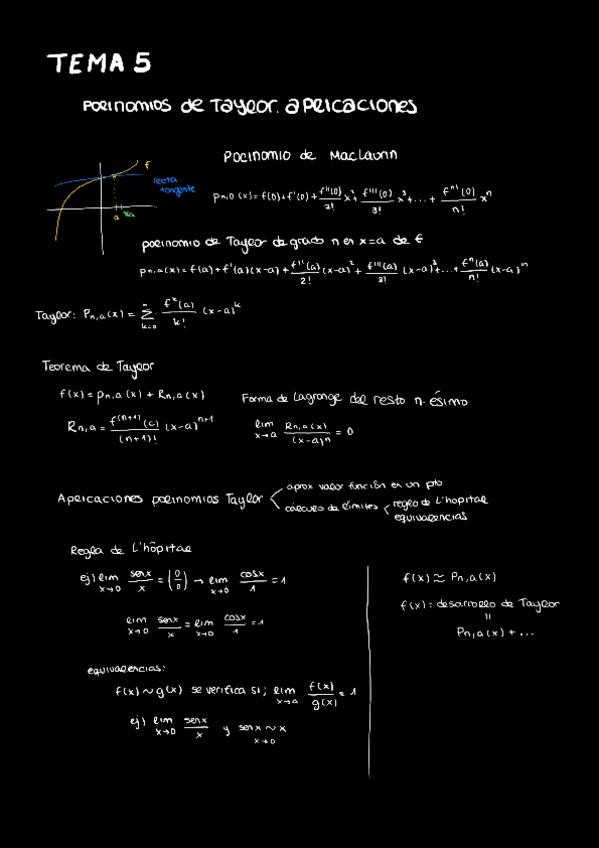 TEMA 5
POLINOMIOS de TAYLOR. APLICACIONES
POLINOMIO de MacLaurin
f
recta
tangente
a
x
Pn,0 (x) = f(0) + f'(0) + f''(0)/2! x² + f'''(0)/3! x³ + ... + f^n)(0)/n! x^n
polinomio de Taylor de grado n en x=a de f
Pn,a(x) = f(a) + f'(a)(x-a) + f''(a)/2! (x-a)² + f'''(a)/3! (x-a)³ + ... + f^n(a)/n! (x-a)^n
Taylor: Pn,a(x) = Σ k=0 n f^k(a)/k! (x-a)^k
Teorema de Taylor
f(x) = Pn,a(x) + Rn,a(x)
Forma de Lagrange del resto n-ésimo
Rn,a = f^(n+1)(c)/(n+1)! (x-a)^n+1
lim x→a Rn,a(x)/(x-a)^n = 0
Aplicaciones polinomios Taylor
aprox valor función en un pto
cálculo de límites
regla de L'hopital
equivalencias
Regla de L'hôpital
ej) lim x→0 senx/x = (0/0) → lim x→0 cosx/1 = 1
lim x→0 senx/x = lim x→0 cosx/1 = 1
equivalencias:
f(x) ~ g(x) se verifica si; lim x→a f(x)/g(x) = 1
ej) lim x→0 senx/x y senx ~ x x→0
f(x) ≈ Pn,a(x)
f(x) = desarrollo de Taylor
=
Pn,a(x) + ...